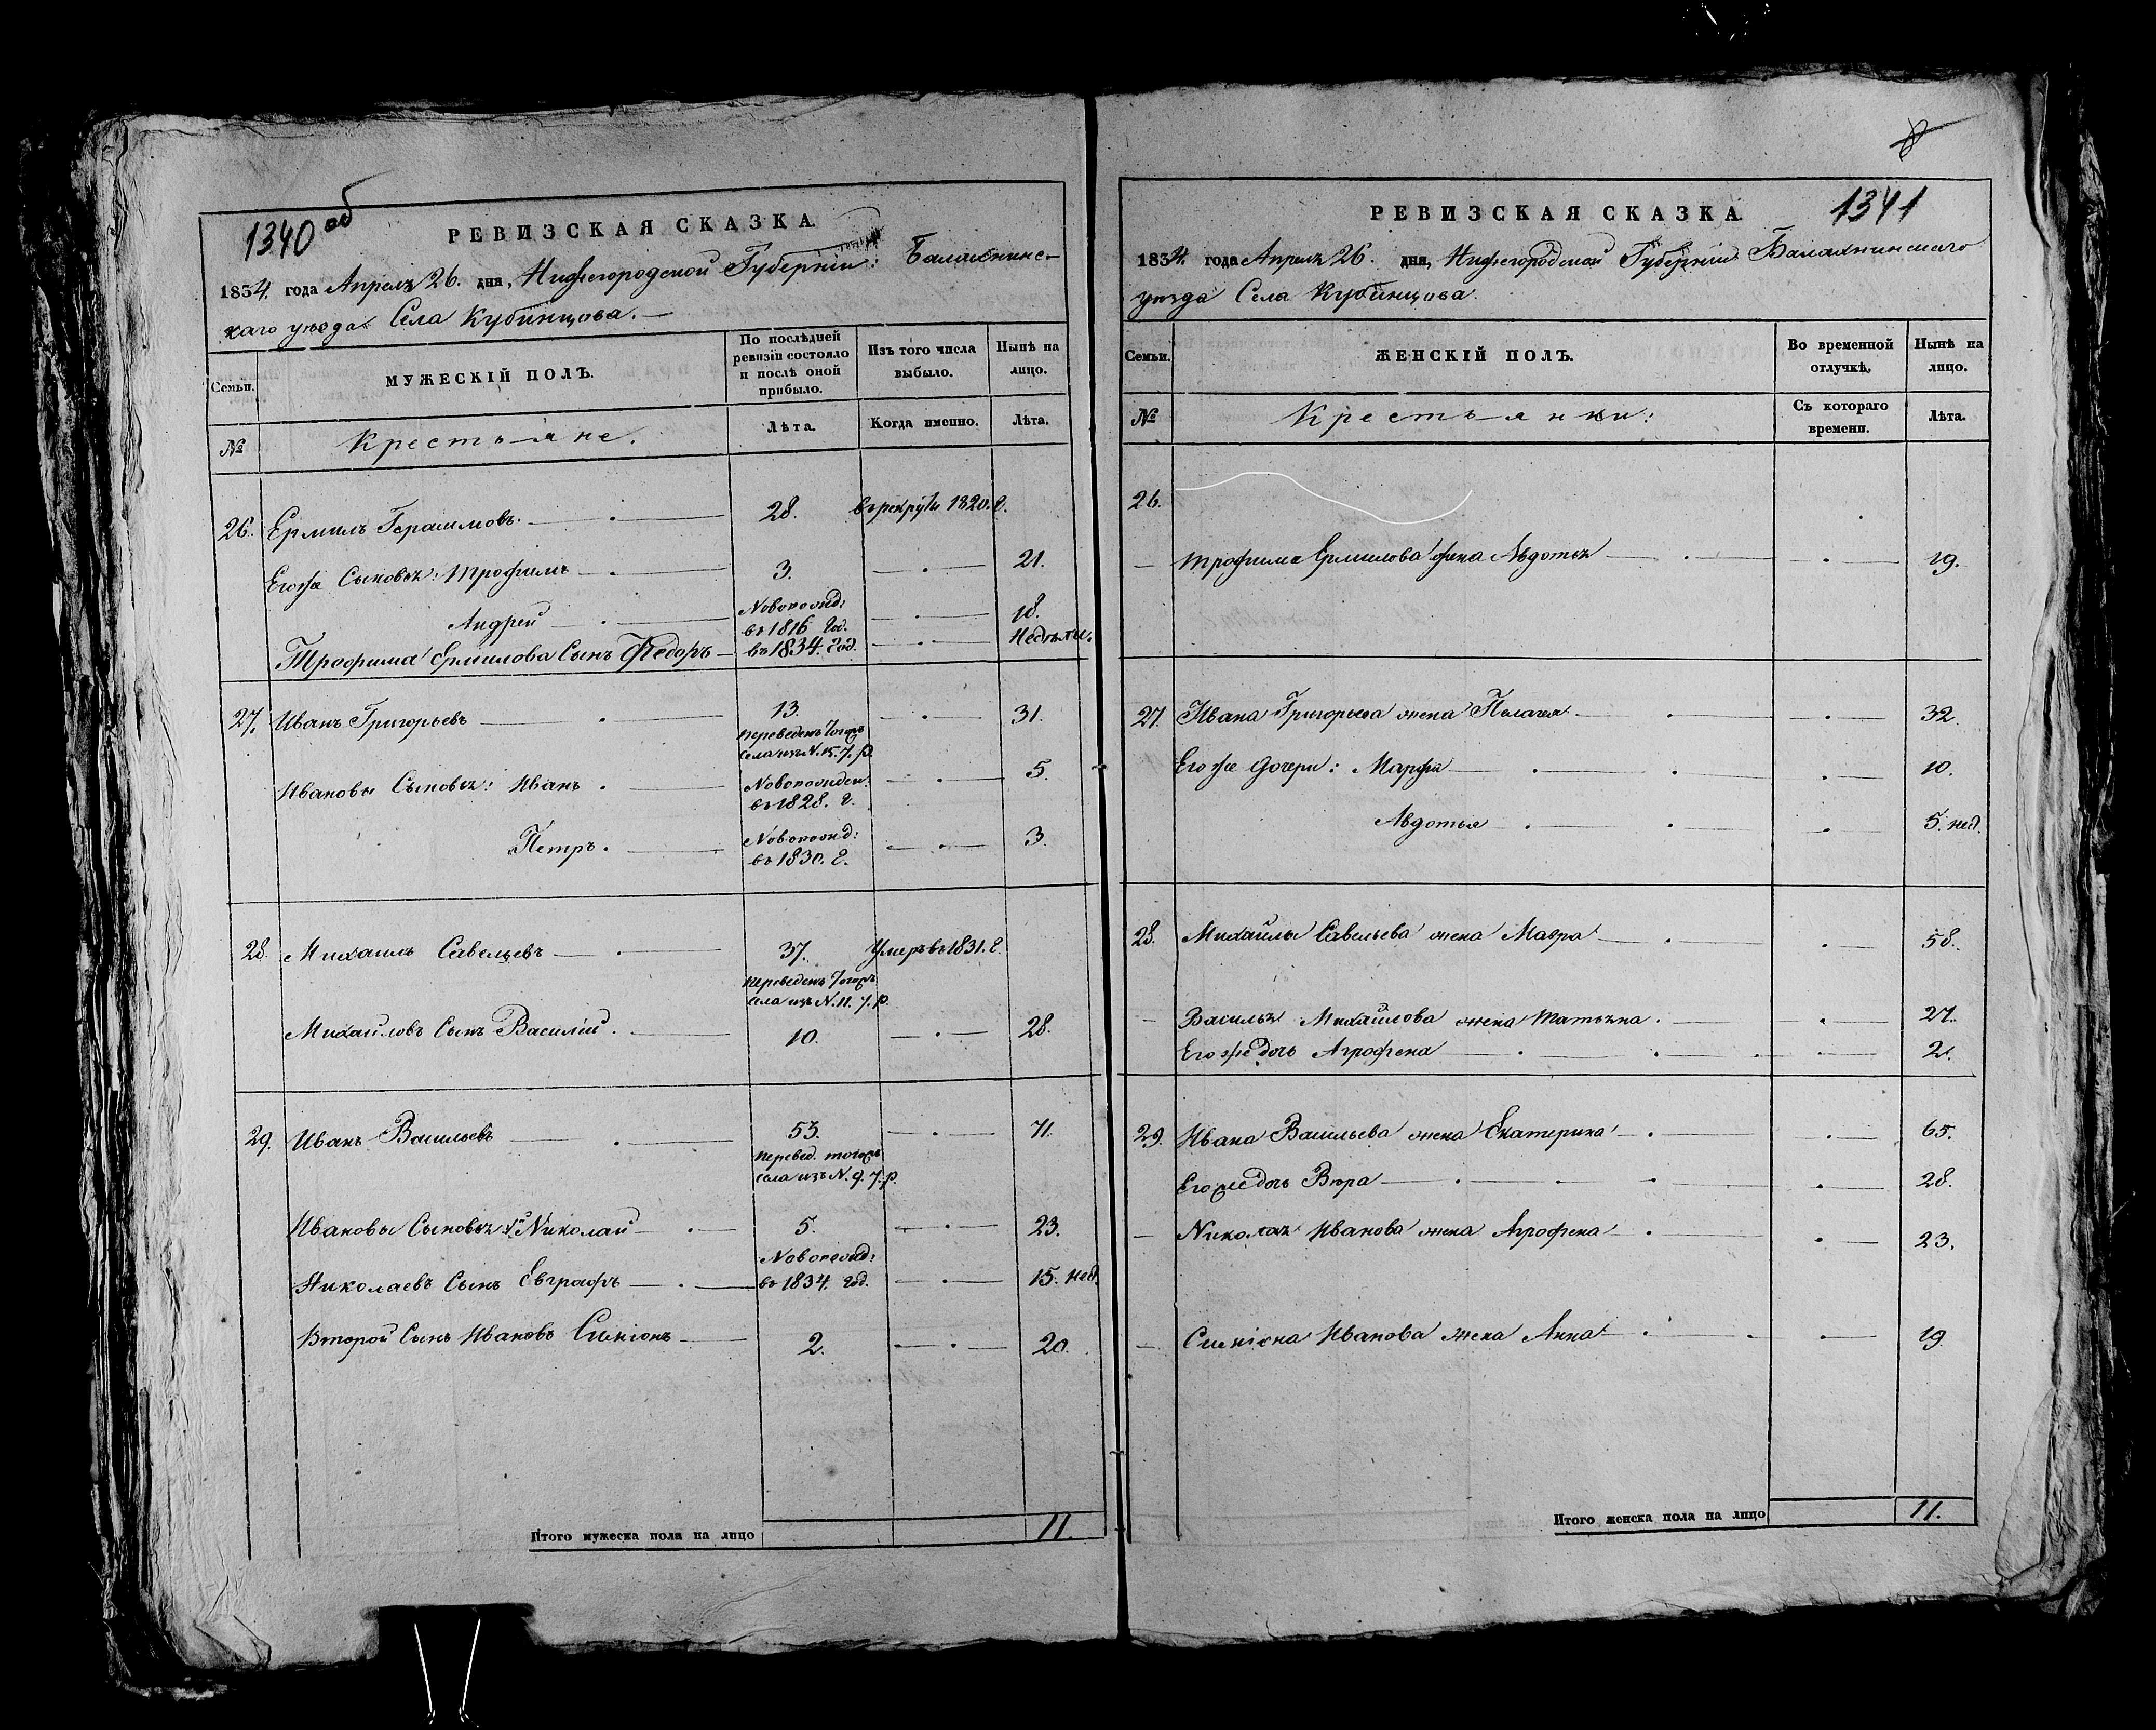 1340 об
РЕВИЗСКАЯ СКАЗКА.
1834. года Апреля 26. дня, Нижегородской Губерніи: Балахнинс-
каго уезда Села Кубинцова.
Семьи.
МУЖЕСКІЙ ПОЛЪ.
По послѣдней ревизіи состояло и послѣ оной прибыло.
Изъ того числа выбыло.
Нынѣ на лицо.
№
Крестьяне.
Лѣта.
Когда именно.
Лѣта.
26. Ермилъ Герасимовъ. 28. въ рекруты 1820. г.
Егоже Сыновья: Трофимъ 3. 21.
Андрей Новорожд: въ 1816 год. 18.
Трофима Ермилова Сынъ Федоръ въ 1834. год. Недѣли.
27. Иванъ Григорьевъ 13. 31.
переведенъ тогожъ
села изъ N. 15. 7. р.
Ивановы Сыновья: Иванъ. Новорожден. въ 1828. г. 5.
Петръ. Новорожд: въ 1830. г. 3.
28. Михаилъ Савельевъ 37. Умеръ въ 1831. г.
переведенъ тогожъ
села изъ N. 11. 7. р.
Михайловъ Сынъ Василій. 10. 28.
29. Иванъ Васильевъ 53. 71.
перевед. тогожъ
села изъ N. 9. 7. р.
Ивановы Сыновья 1й Николай 5. 23.
Николаевъ Сынъ Евграфъ Новорожд: въ 1834. год. 15. нед.
Второй Сынъ Ивановъ Симіонъ 2. 20.
Итого мужеска пола на лицо 11.
1341
РЕВИЗСКАЯ СКАЗКА.
1834. года Апреля 26. дня, Нижегородской Губерніи Балахнинскаго
уезда Села Кубинцова.
Семьи.
ЖЕНСКІЙ ПОЛЪ.
Во временной отлучкѣ,
Нынѣ на лицо.
№
Крестьянки:
Съ котораго времени.
Лѣта.
26.
Трофима Ермилова жена Авдотья 19.
27. Ивана Григорьева жена Пелагея 32.
Егоже дочери: Марфа 10.
Авдотья 5. нед.
28. Михайлы Савельева жена Мавра 58.
Василья Михайлова жена Татьяна. 27.
Егоже дочь Агрофена 2.
29. Ивана Васильева жена Екатерина 65.
Егоже дочь Вѣра 28.
Николая Иванова жена Агрофена 23.
Симіона Иванова жена Анна 19.
Итого женска пола на лицо 11.